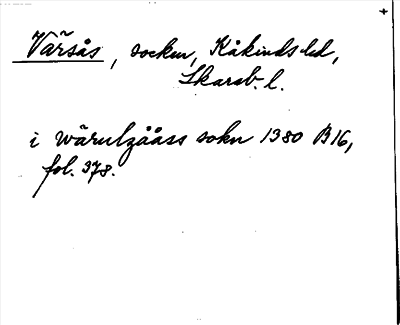 Värsås, socken, Kåkinds hd,
Skarab. l.
i wärulzååss sokn 1380 B16,
fol. 378.